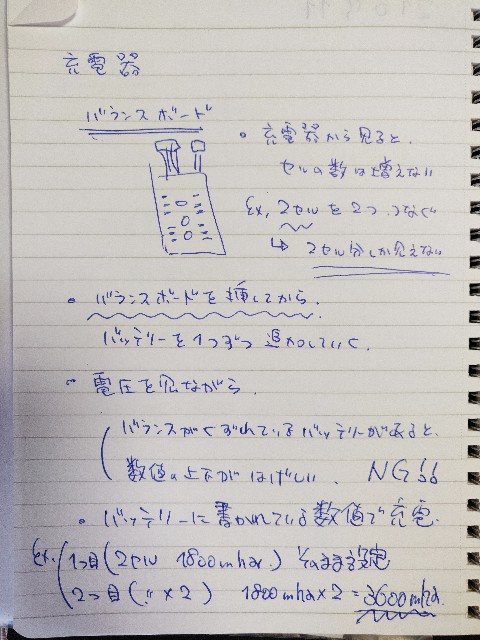 充電器
バランスボード
・充電器から見ると、
セルの数は増えない
Ex, 2セルを2つ つなぐ
↳ 2セル分しか見えない
・バランスボードを挿してから、
バッテリーを1つずつ追加していく。
・電圧を見ながら
バランスがくずれているバッテリーがあると、
数値の上下がはげしい。 NG!!
・バッテリーに書かれている数値で充電。
Ex. 1つ目(2セル 1800mha.) そのまま設定
2つ目(〃×2) 1800mha×2=3600mha.